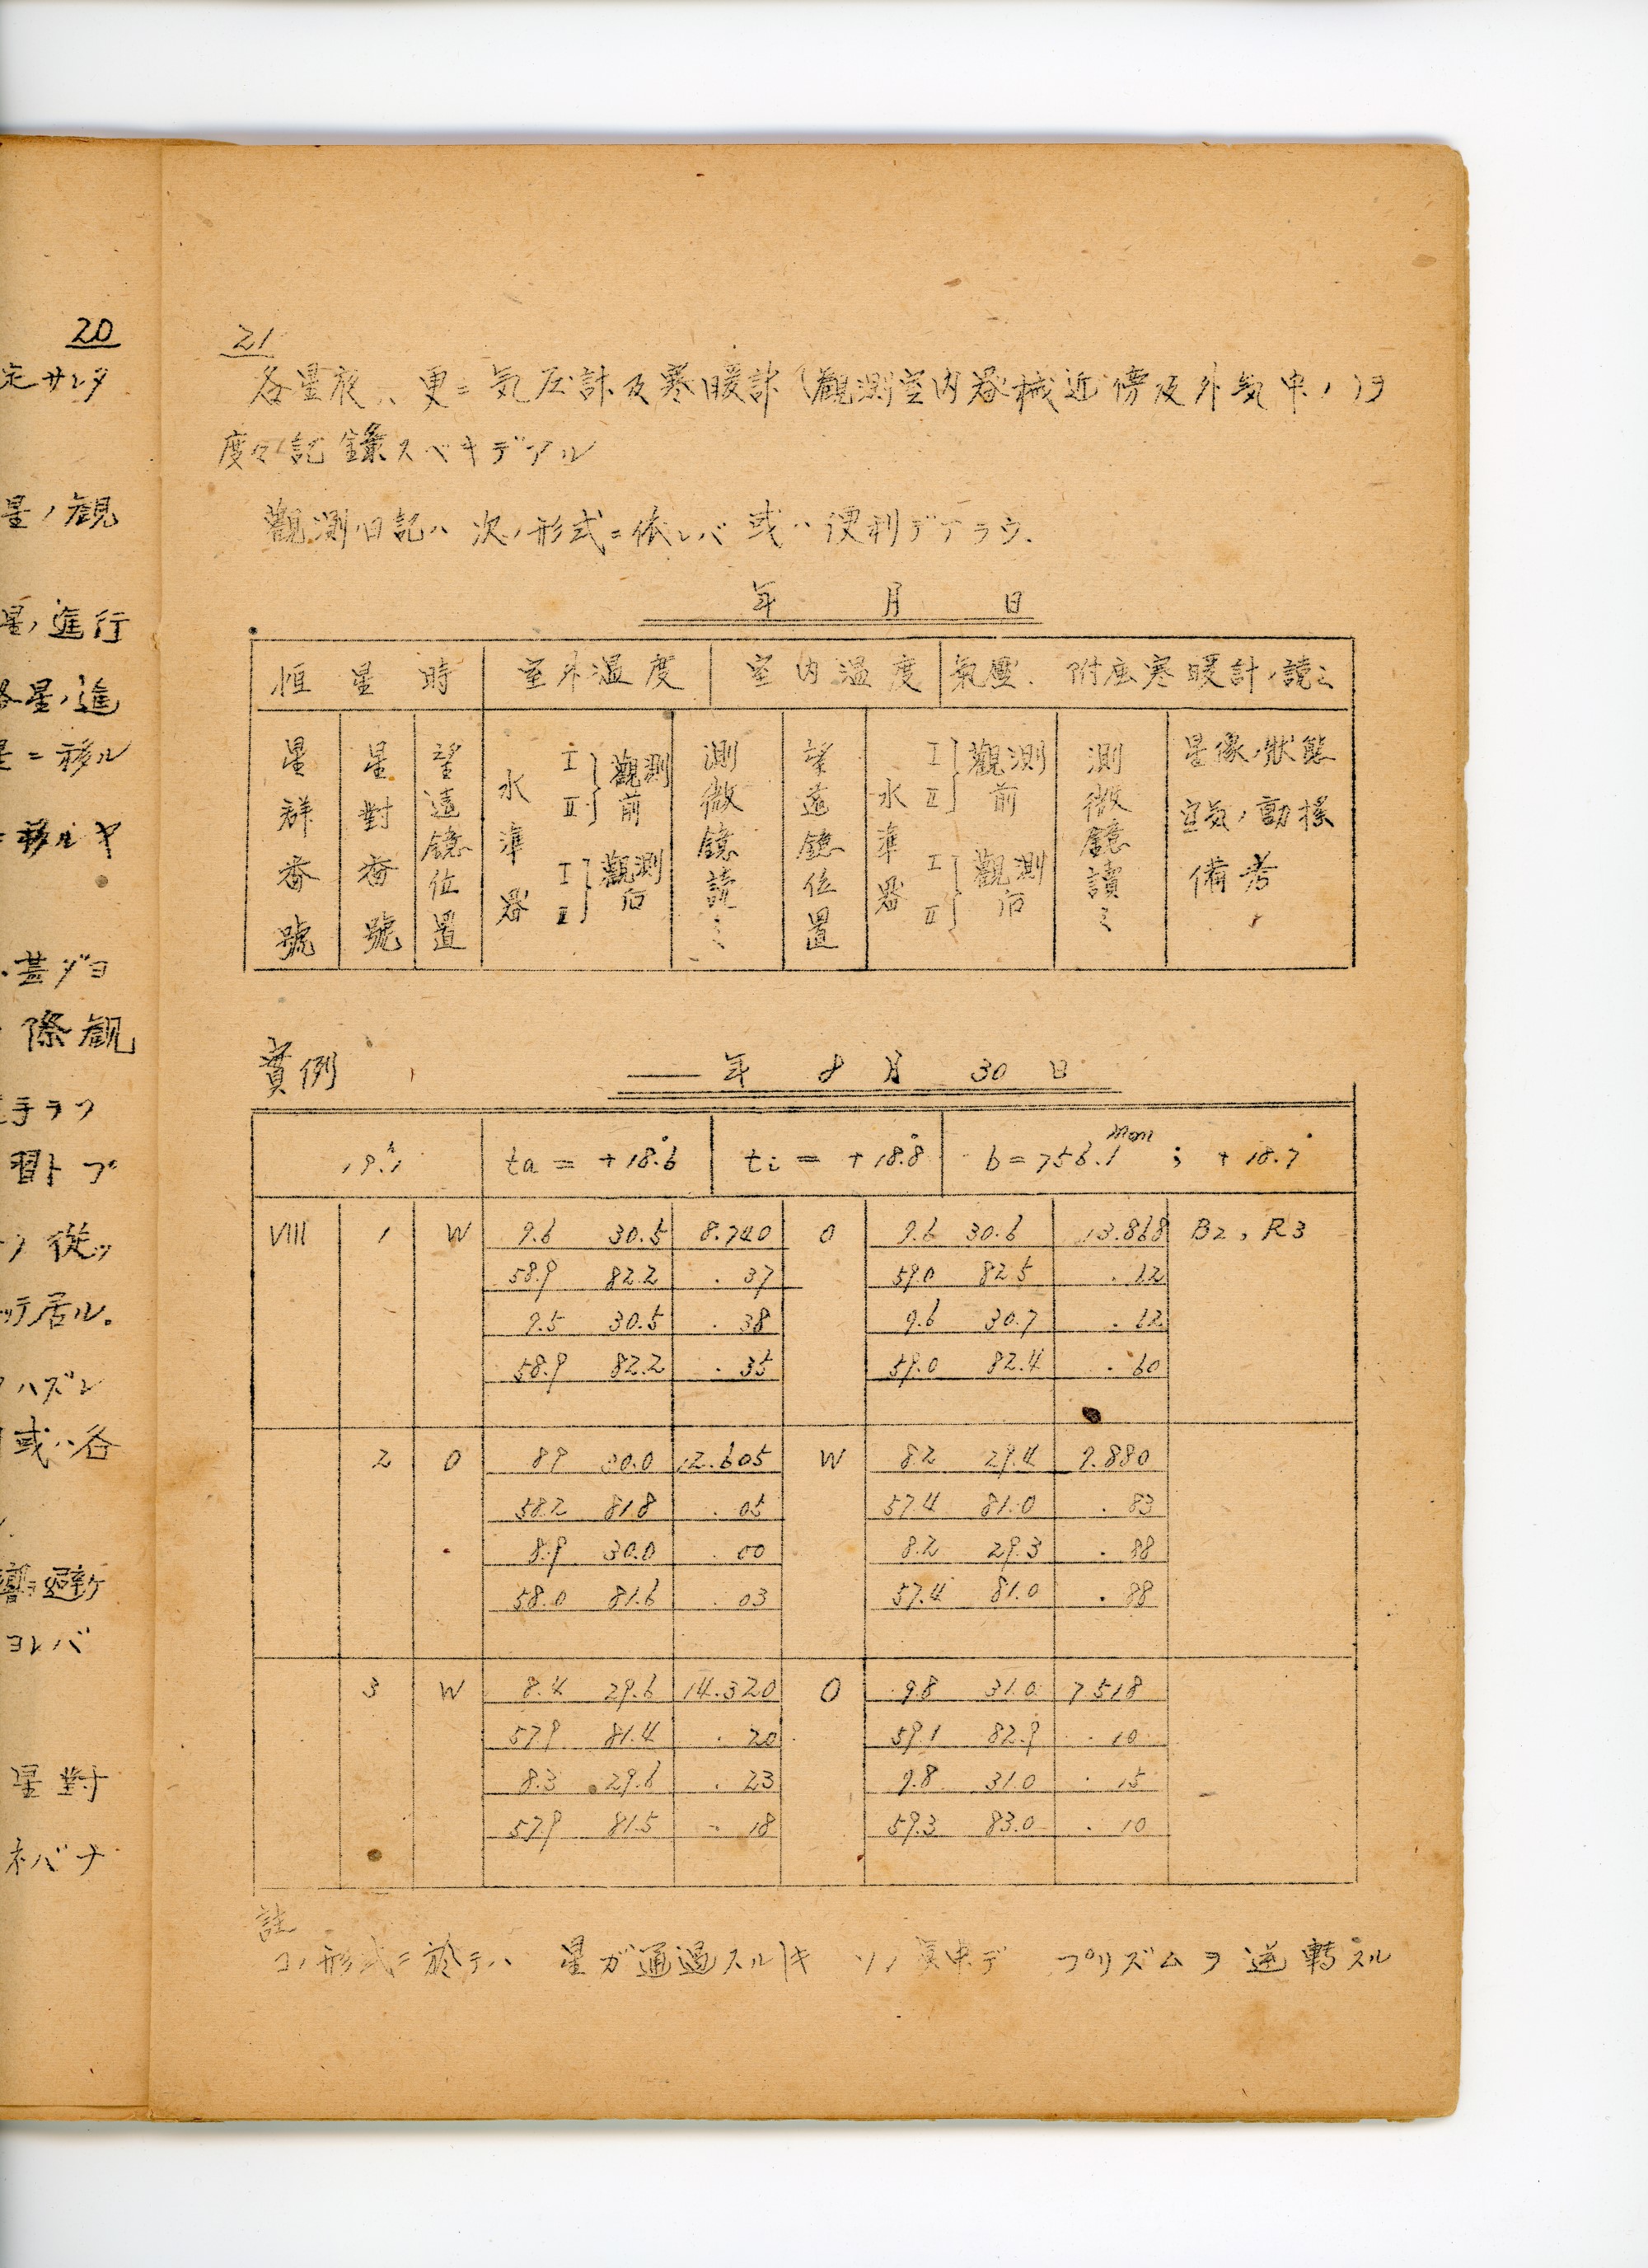 20
定サレタ
星ノ観
星ノ進行
各星ノ進
星ニ移ル
移ルヤ
甚ダヨ
際観
手ラツ
習トブ
従ッ
ッテ居ル。
ハズレ
或ハ各
避ケ
ヨレバ
星對
ネバナ
21
各星夜ハ、更ニ気圧計及寒暖計(觀測室内器械近傍及外気中ノ)ヲ
度々記錄スベキデアル
觀測日記ハ次ノ形式ニ依レバ或ハ便利デアラウ.
年 月 日
恒星時 室外温度 室内温度 氣壓. 附屬寒暖計ノ読ミ
星群番號 星對番號 望遠鏡位置 水準器 I II}觀測前 I II}觀測后 測微鏡読ミ 望遠鏡位置 水準器 I II}觀測前 I II}觀測后 測微鏡讀ミ 星像ノ狀態 空気ノ動揺 備考
實例 —— 年 8 月 30 日
19.1h ta = +18.6° ti = +18.8° b = 756.1mm ; +18.7°
VIII 1 W 9.6 30.5 8.740 O 9.6 30.6 13.868 B2, R3
58.9 82.2 .37 59.0 82.5 .62
9.5 30.5 .38 9.6 30.7 .62
58.9 82.2 .35 59.0 82.4 .60
2 O 89 30.0 12.605 W 8.2 29.4 9.880
58.2 81.8 .05 57.4 81.0 .83
8.9 30.0 .00 8.2 29.3 .88
58.0 81.6 .03 57.4 81.0 .88
3 W 8.4 29.6 14.320 O 9.8 31.0 7518
579 81.4 .20 59.1 82.9 .10
8.3 29.6 .23 9.8 31.0 .15
579 81.5 .18 59.3 83.0 .10
註
コノ形式ニ於テハ 星ガ通過スルトキ ソノ眞中デ プリズムヲ逆轉スル